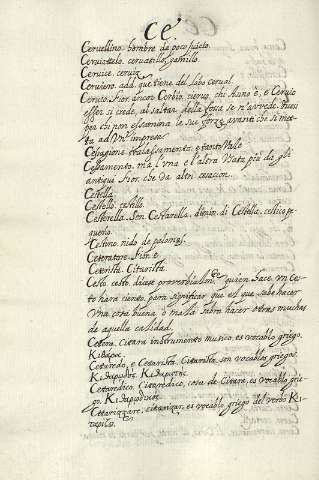 Ce.
Cervellino. hombre de poco juicio.
Cerviattello. cervatillo,
Cervice. cerviz
Cerviero. add. que tiene del lobo cerval.
Cervio. Fior. ancor. Cerbio. ciervo, chi Asino è, e Cervio
esser si crede, al saltar della fossa se n'avvede.
per chi non essamina le sue forze avanti che si met-
ta ad un' impresa.
Cessagione
Cessamento. ma l'una e l'altra usata più da gli
antiqui Fior. che da altri
Cestella.
Cestello. cestillo.
Cesterella. Sen. Cestarella. dimin. di Cestella. cestico pe-
queño.
Cestino. nido de palomas.
Ceteratore. Fior.
Ceterista. Citarista.
Cesto. cesto. dicese proverbialm.te quien hace un ces-
to hara ciento, para significar que el que sabe hacer
una cosa buena, o mala sabra hacer otras muchas
de aquella calidad.
Cetera. citara instrumento musico, es vocablo griego.
Κιθάρα.
Cetaredo, e Cetarista. Citarista, son vocablos griegos.
Κιθαρωδὸς, Κιθαριστὴς.
Cetaredico. Citaredico, cosa de Citara, es vocablo grie-
go. Κιθαρωδικὸς
Cetarizzare. citarizar, es vocablo griego del verbo Κι-
θαρίζω.